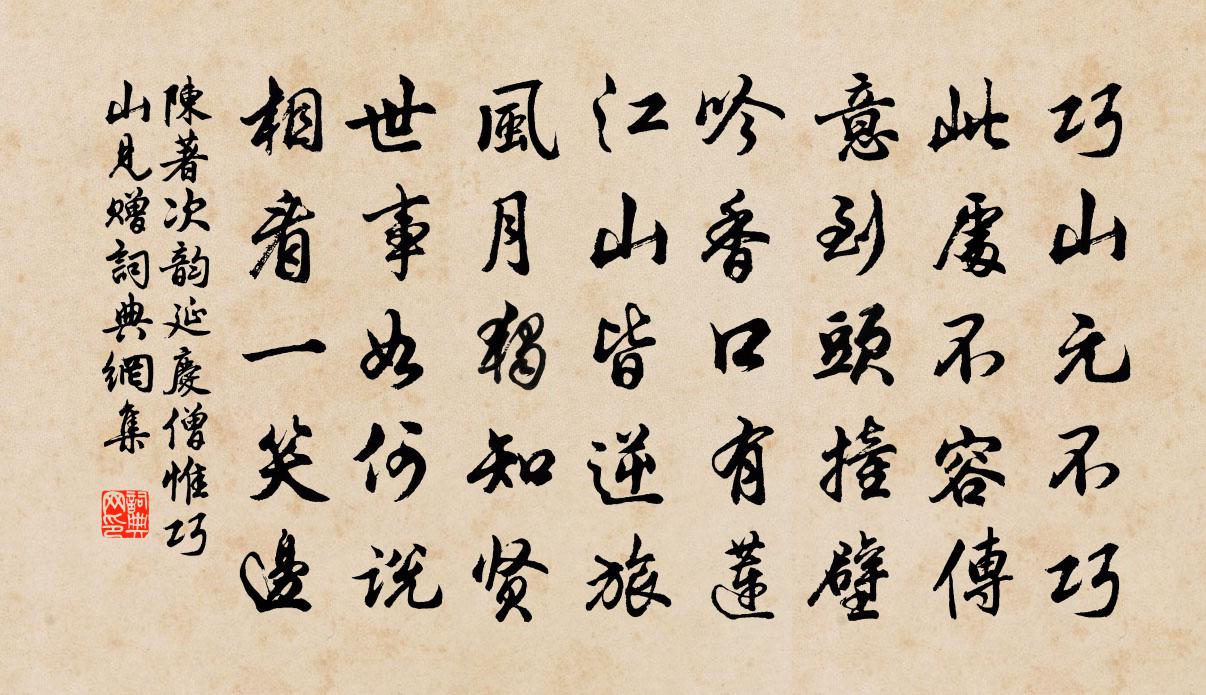 巧山元不巧
此處不容傳
意到頭撞壁
吟香口有蓮
江山皆逆旅
風月獨知賢
世事如何說
相看一笑邊
陳著次韵延慶僧惟巧
山見贈詞典網集
詞典网印